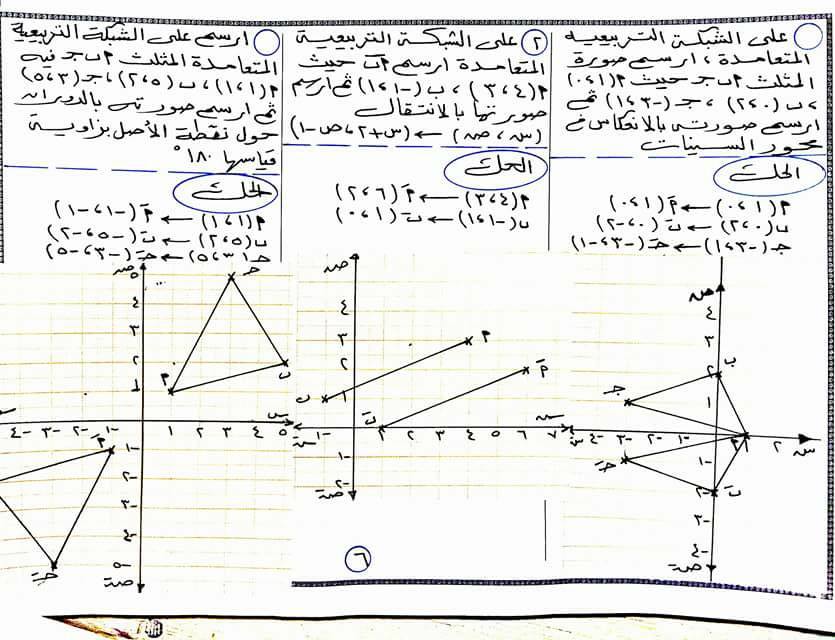 على الشبكة التربيعية
المتعامدة ، ارسم صورة
المثلث م ب ج حيث م(١،٠)
، ب (٠،٢) ، ج (-٣،١) ثم
ارسم صورته بالانعكاس في
محور السينات
الحل
م(١،٠) ← مَ(١،٠)
ب(٠،٢) ← بَ(٠،-٢)
ج(-٣،١) ← جَ(-٣،-١)
ص
٤
٣
ب
٢
ج
١
س -٤ -٣ -٢ -١ م ٢ س
-١
جَ
-٢ بَ
-٣
-٤
صَ
٢ على الشبكة التربيعية
المتعامدة ارسم م ب حيث
م(٤،٣) ، ب(-١،١) ثم ارسم
صورتها بالانتقال
(س ، ص) ← (س+٢، ص-١)
الحل
م(٤،٣) ← مَ(٦،٢)
ب(-١،١) ← بَ(١،٠)
ص
٤
٣ م
٢ مَ
ب ١
بَ س
سَ -١ ١ ٢ ٣ ٤ ٥ ٦ ٧
-١
-٢
صَ
٦
ارسم على الشبكة التربيعية
المتعامدة المثلث م ب ج فيه
م(١،١) ، ب(٥،٢) ، ج(٣،٥)
ثم ارسم صورته بالدوران
حول نقطة الأصل بزاوية
قياسها ١٨٠°
الحل
م(١،١) ← مَ(-١،-١)
ب(٥،٢) ← بَ(-٥،-٢)
ج(٣،٥) ← جَ(-٣،-٥)
ص
٥ ج
٤
٣
٢ ب
م ١
س
-٤ -٣ -٢ -١ ١ ٢ ٣ ٤ ٥
مَ -١
-٢
-٣
-٤
جَ -٥
صَ